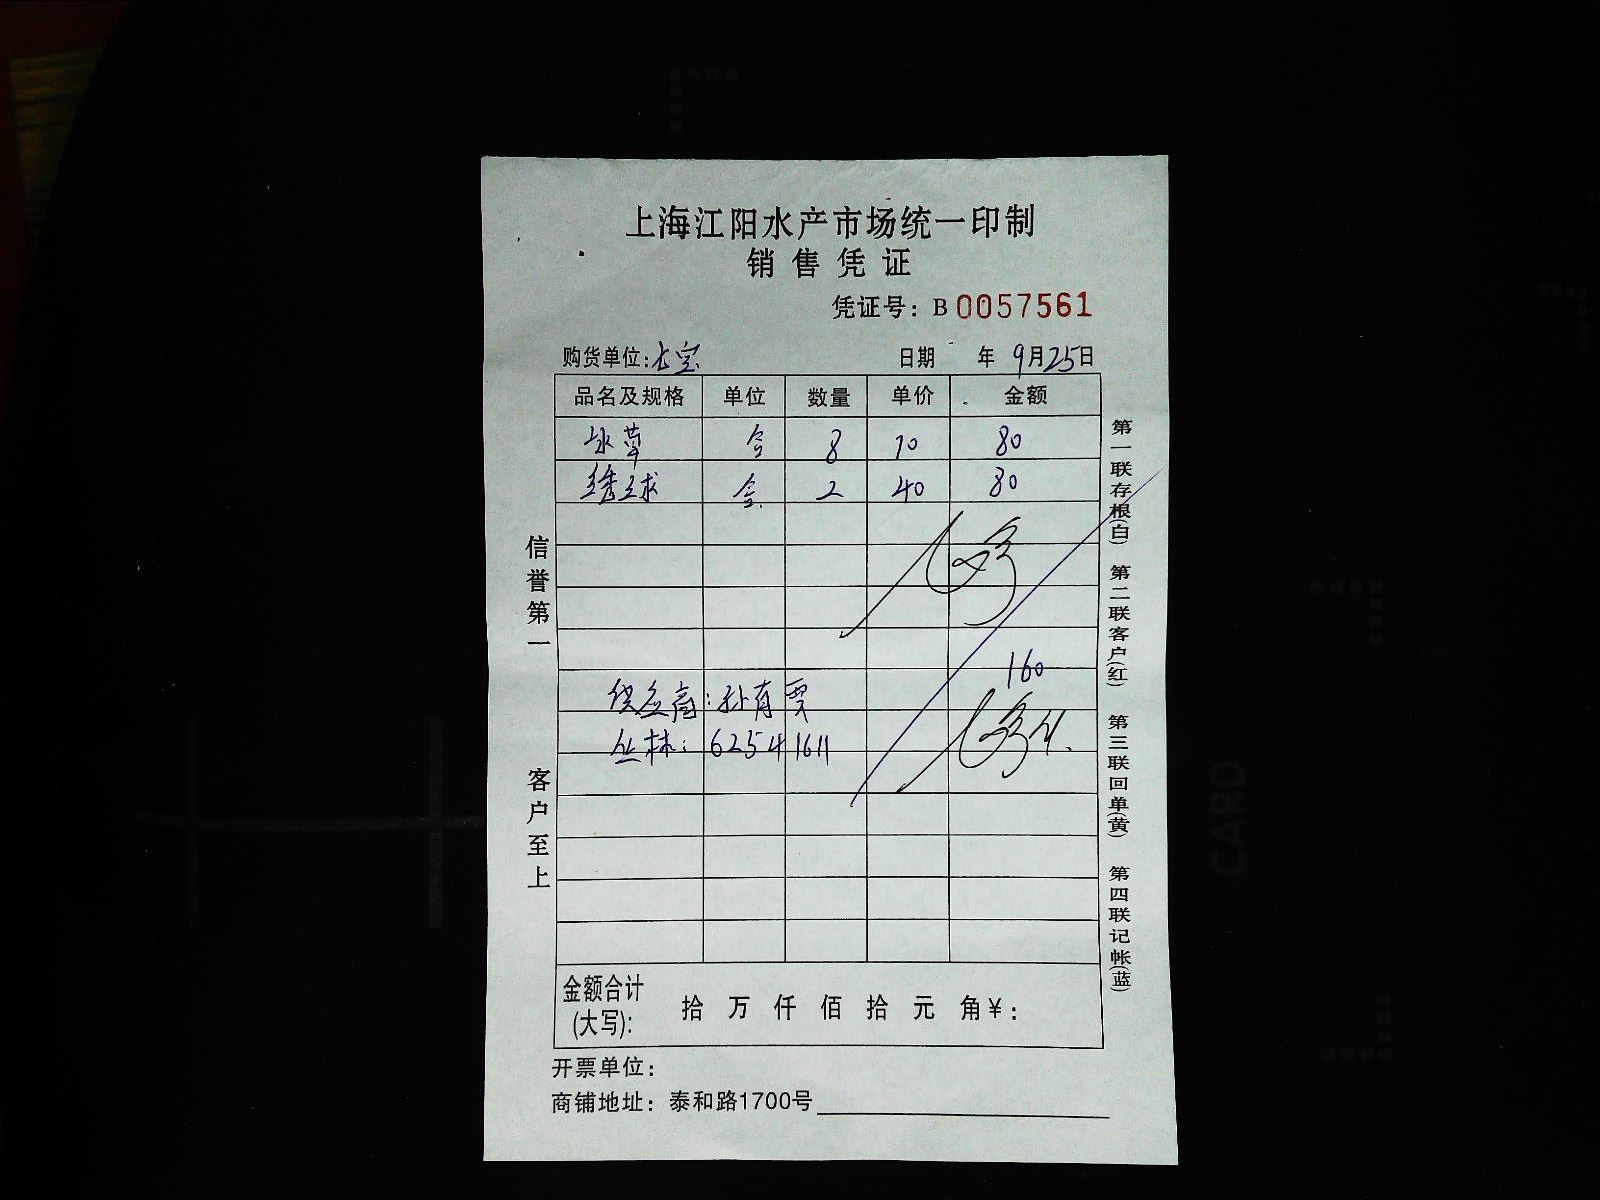 上海江阳水产市场统一印制
销售凭证
凭证号：B 0057561
购货单位:长宝 日期 年 9月25日
品名及规格 单位 数量 单价 金额
水草 盒 8 10 80
绣球 盒 2 40 80
160
供应商:孙有贾
丛林: 62541611
金额合计(大写): 拾 万 仟 佰 拾 元 角¥：
开票单位：
商铺地址：泰和路1700号
信誉第一
客户至上
第一联存根(白) 第二联客户(红) 第三联回单(黄) 第四联记帐(蓝)
CARD